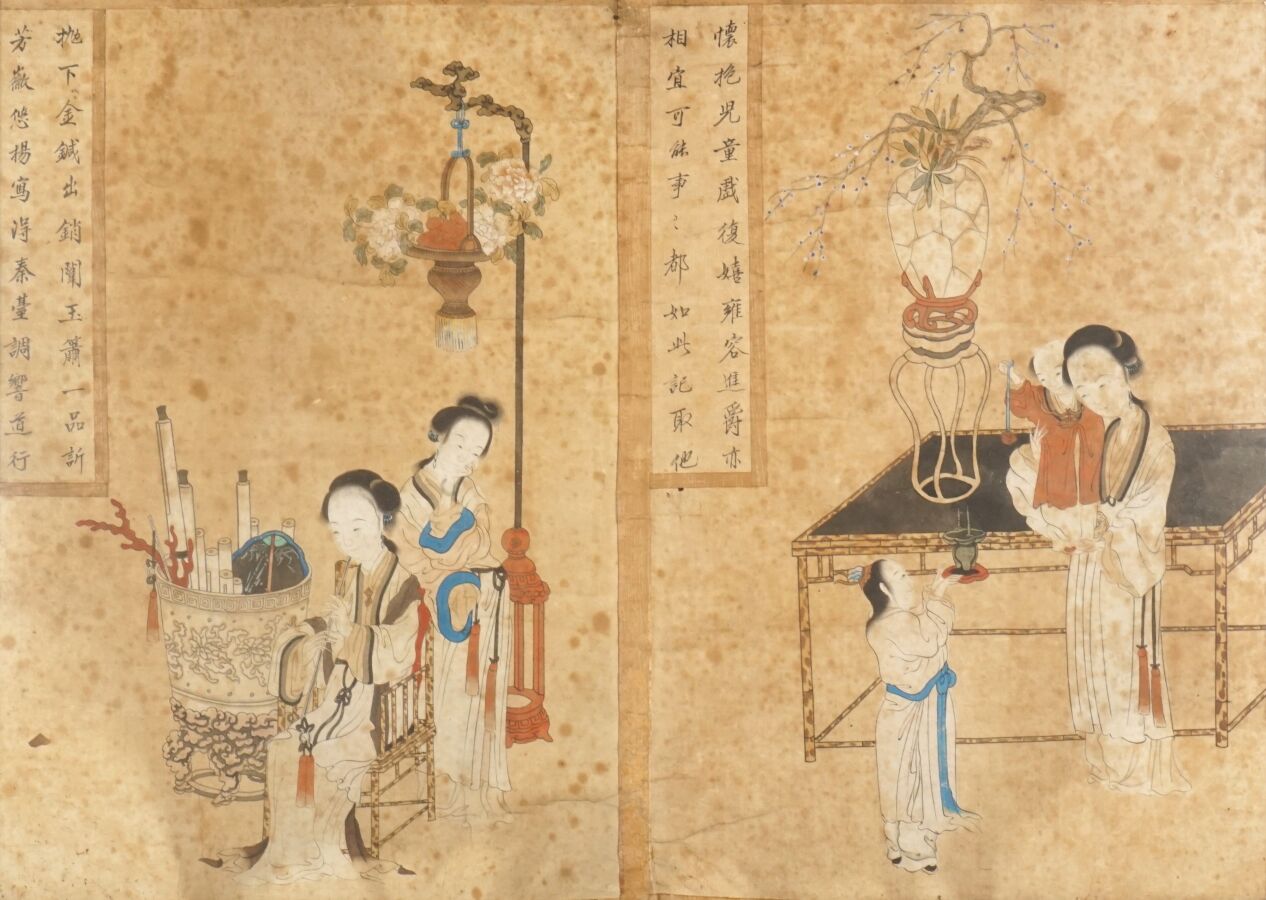 懷抱兒童戲復嬉雍容進爵亦
相宜可能事〻都如此記取他
抛下金鍼出銷闈玉簫一品訴
芳徽悠揚寫得秦臺調響遏行